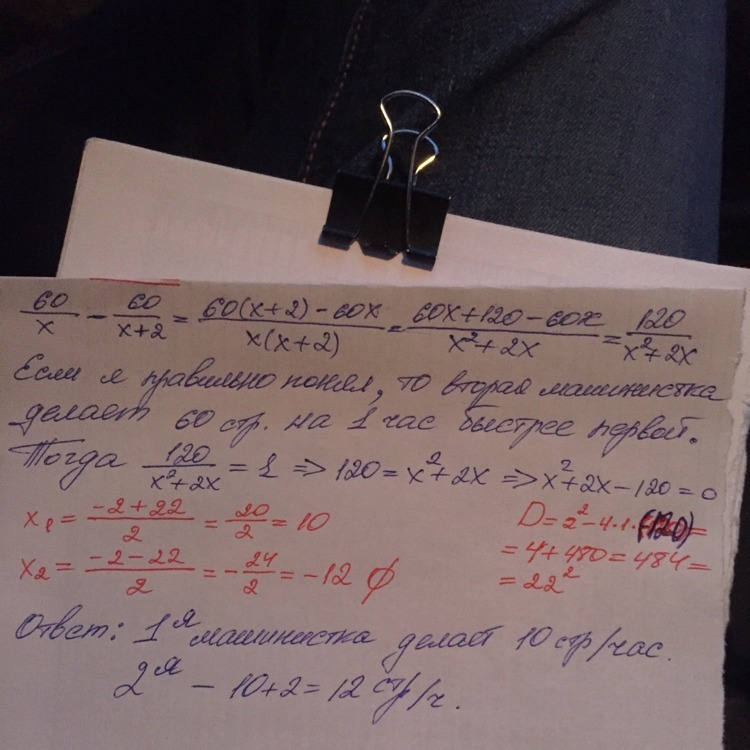 60/x - 60/x+2 = 60(x+2) - 60x / x(x+2) = 60x+120-60x / x²+2x = 120 / x²+2x
Если я правильно понял, то вторая машинистка
делает 60 стр. на 1 час быстрее первой.
Тогда 120 / x²+2x = 1 => 120 = x²+2x => x²+2x-120=0
x₁ = -2+22 / 2 = 20/2 = 10
x₂ = -2-22 / 2 = -24/2 = -12 ∅
D = 2²-4·1·(-120) =
= 4+480 = 484 =
= 22²
Ответ: 1я машинистка делает 10 стр/час.
2я - 10+2 = 12 стр/ч.